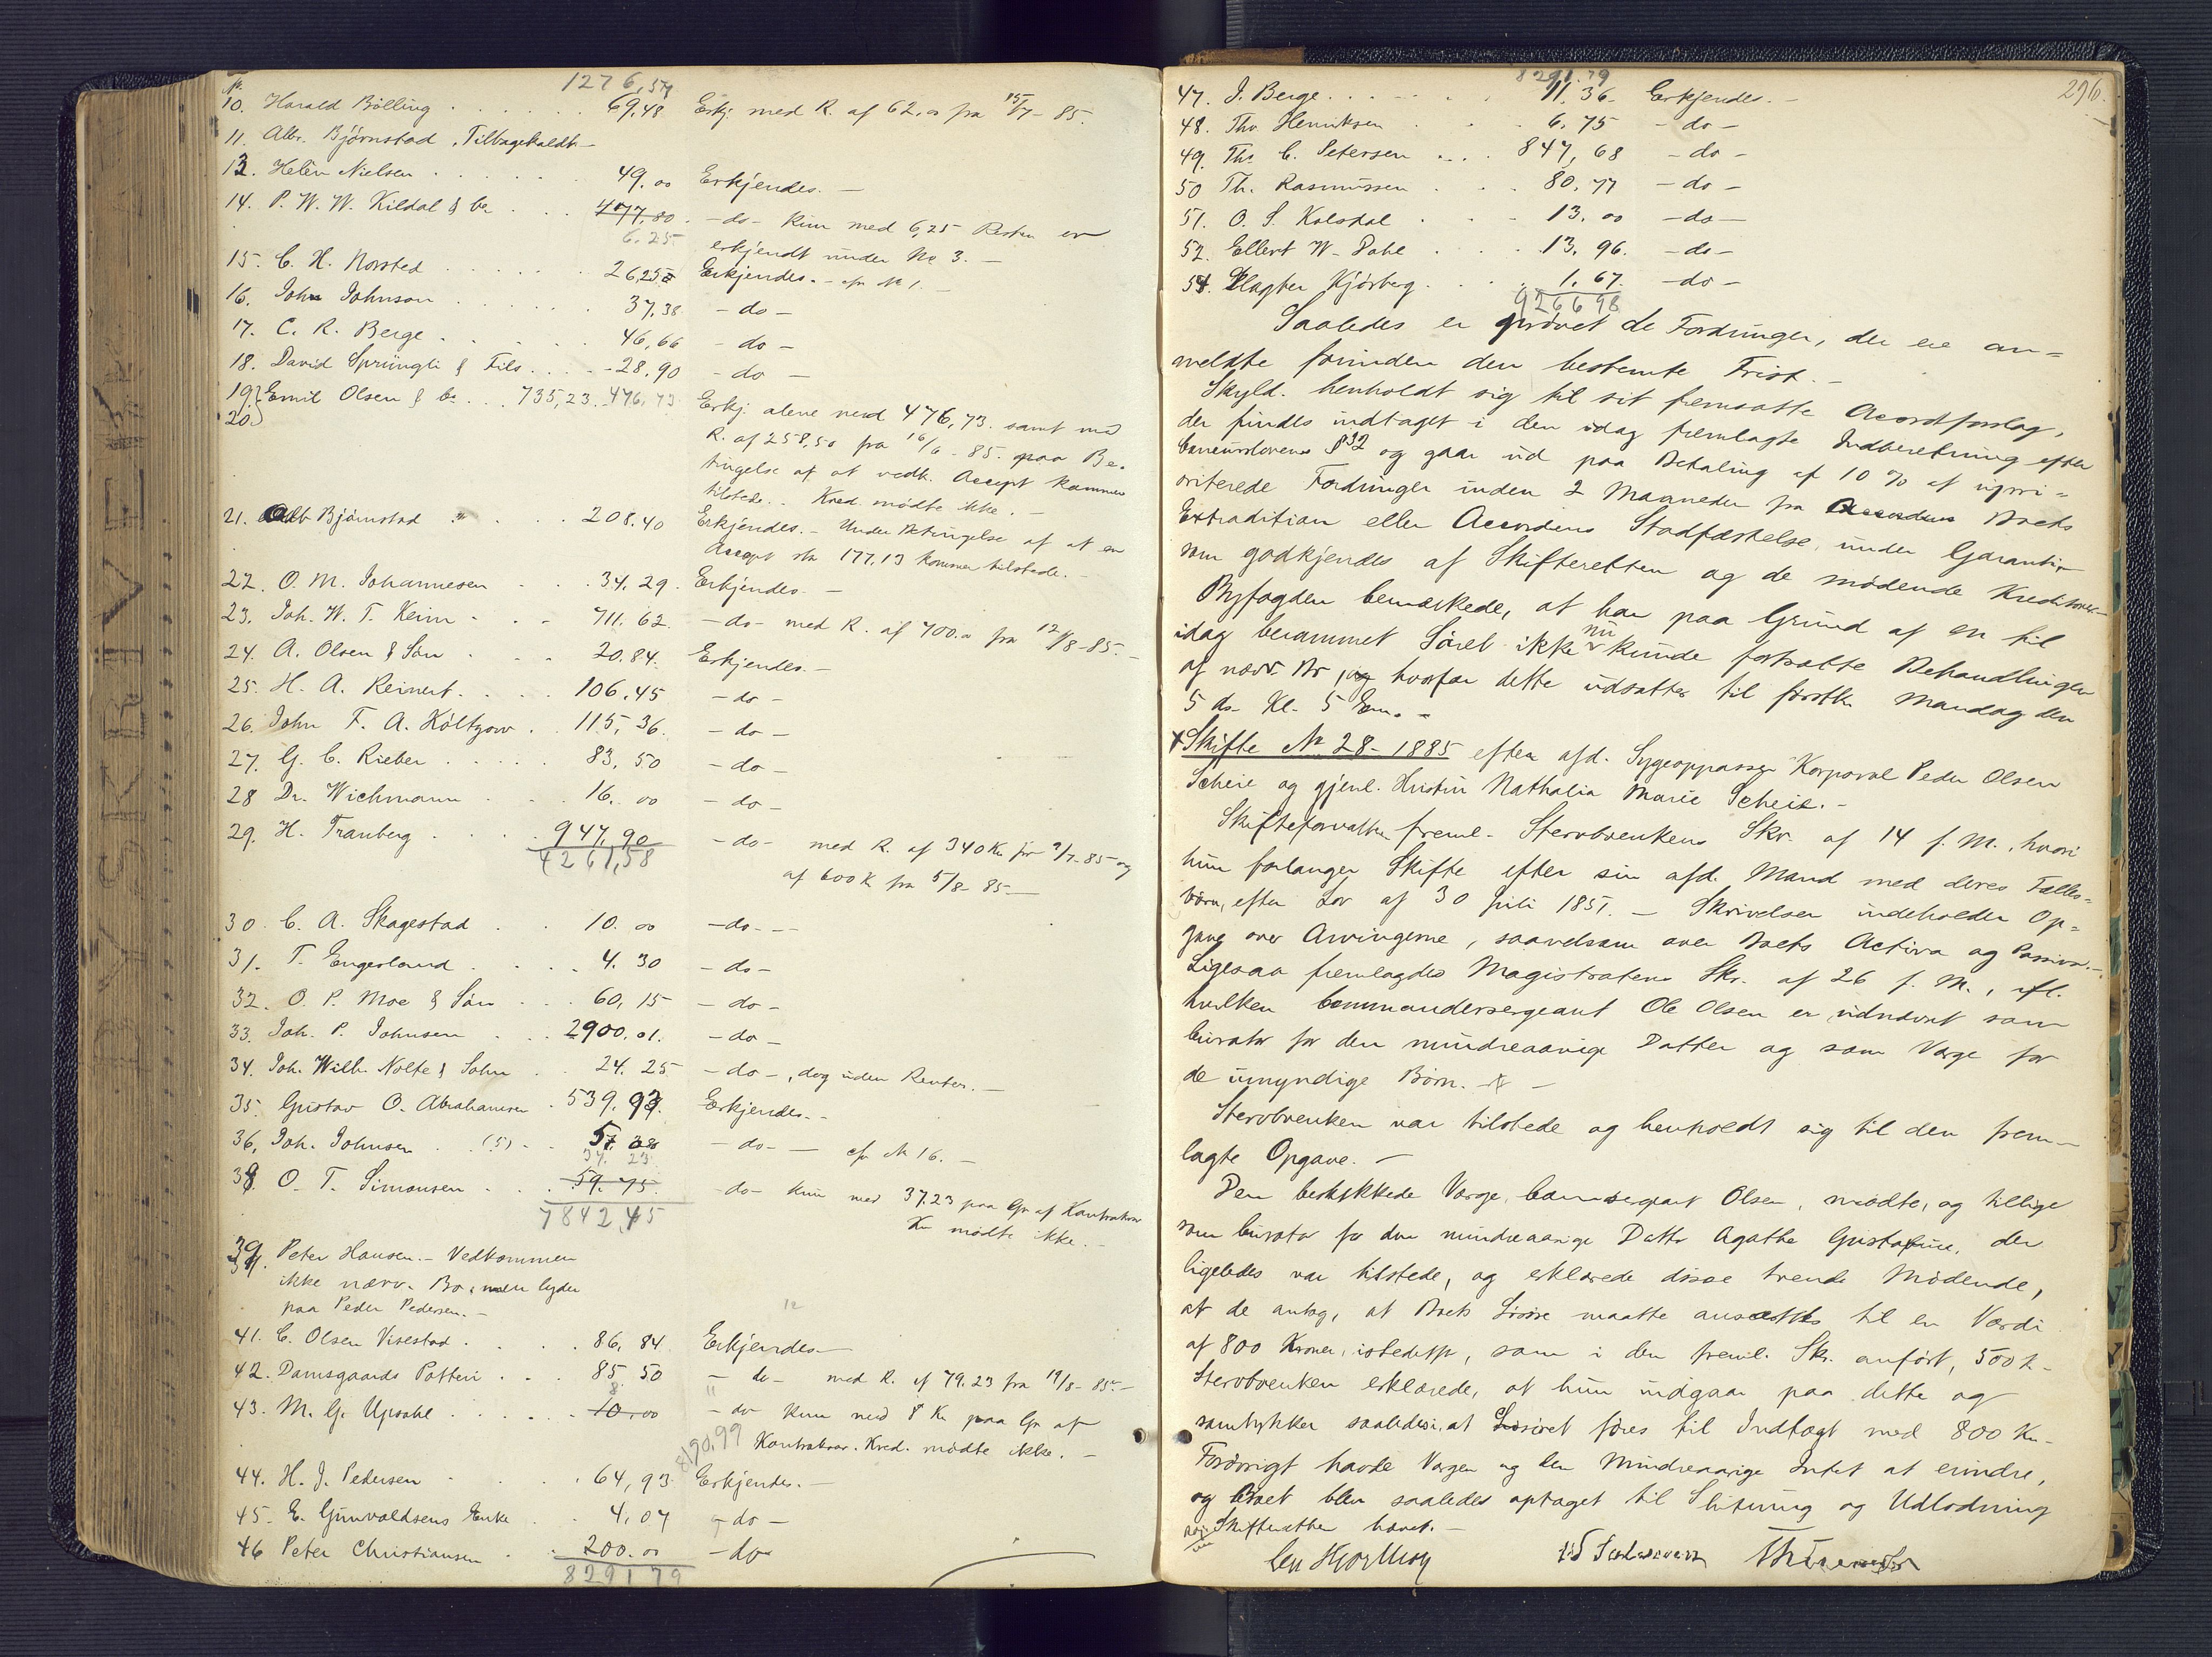 1276,54
No.
10. Harald Bölling . . . . . 69,48 Erkj. med R. af 62,00 fra 15/7 - 85.
11. Alb. Bjørnstad, Tilbagekaldt -
13. Helen Nielsen . . . . . 49.00 Erkjendes. -
14. P. W. W. Kildal & Co . . . 477,80. - do - kun med 6,25 Resten er
6.25 erkjendt under No 3. -
15. C. H. Norsted . . . . . 26,25 Erkjendes. - cfr No 1. -
16. John Johnson . . . . . 37,38 - do -
17. C. R. Berge . . . . . 46,66 - do -
18. David Sprüngli & Fils . . . . 28.90 - do -
19} Emil Olsen & Co . . . 735,23. 476,73 Erkj. alene med 476,73. samt med
20} R. af 258,50 fra 16/6 - 85. paa Be-
tingelse af at vedk. Accept kommer
tilstede. Kred. mødte ikke. -
21. Alb Bjørnstad " . . . 208.40 Erkjendes. - Under Betingelse af at en
Accept stor 177,13 kommer tilstede. -
22. O. M. Johannesen . . . 34.29. Erkjendes. -
23. Joh. W. T. Keim . . . 711.62. - do - med R. af 700.00 fra 12/8 - 85. -
24. A. Olsen & Søn . . . 20.84. Erkjendes. -
25. H. A. Reinert . . . . 106.45 - do -
26. John F. A. Költzow . . 115,36. - do -
27. G. C. Rieber . . . . . 83,50 - do -
28 Dr. Wichmann . . . . 16.00 - do -
29. H. Tranberg . . . . 947,90 - do - med R. af 340 Kr fra 9/7. 85 og
4261,58 af 600 K fra 5/8 - 85 -
30. C. A. Skagestad . . . 10.00 - do. -
31. T. Engesland . . . . 4.30 - do -
32. O. P. Moe & Søn . . . 60,15 - do -
33. Joh. P. Johnsen . . . 2900.01. - do -
34. Joh. Wilh. Nolte & Sohn . . 24.25 - do -, dog uden Renter. -
35. Gustav O. Abrahamsen . 539.93. Erkjendes. -
36, Joh. Johnsen . . (5) . . 57.38 - do - cfr No 16. -
37.23
38. O. T. Simonsen . . . 59.75. - do - kun med 37.23 paa Gr. af Kontrakrav
784245 Kr mødte ikke. -
39. Peter Hansen. - Vedkommer
ikke nærv. Bo, men lyder
paa Peder Pedersen. -
41. C. Olsen Visestad . . . . 86,84 Erkjendes. -
42. Damsgaards Potteri . . . 85 50 - do - med R. af 79.23 fra 19/8 - 85. -
8
43. M. G. Upsahl . . . . . 10.00 - do kun med 8 Kr paa Gr. af
8190.99 Kontrakrav. Kred. mødte ikke. -
44. H. J. Pedersen . . . . 64,93 Erkjendes. -
45. E. Gunvaldsens Enke . . 4.07 - do -
46 Peter Christiansen . . 200.00 - do -
829179
296.
8291.79
47. J. Berge . . . . . . . 11.36. Erkjendes. -
48. Thv. Henriksen . . . 6.75 - do -
49. Thv. C. Petersen . . . . 847,68 - do -
50 Th. Rasmussen . . . 80,77 - do -
51. O. S. Kolsdal . . . 13.00 - do -
52. Ellert W. Dahl . . . . 13,96. - do -
54. Slagter Kjørberg . . . . 1.67. - do -
926698
Saaledes er prøvet de Fordringer, der ere an=
meldte forinden den bestemte Frist. -
Skyld. henholdt sig til sit fremsatte Accordforslag,
der findes indtaget i den idag fremlagte Indberetning efter
Concurslovens § 32 og gaar ud paa Betaling af 10 % af upri=
oriterede Fordringer inden 2 Maaneder fra Accordens Boets
Extradition eller Accordens Stadfæstelse, under Garanti,
som godkjendes af Skifteretten og de mødende Kreditorer -
Byfogden bemærkede, at han paa Grund af en til
idag berammet Søret ikke nu kunde fortsætte Behandlingen
af nærv. Bo, og hvorfor dette udsattes til førstk. Mandag den
5 ds. Kl. 5 Em. -
+ Skifte No 28 - 1885 efter afd. Sygeoppasser Korporal Peder Olsen
Scheie og gjenl. Hustru Nathalia Marie Scheie. -
Skifteforvalteren freml. Stervboenkens Skr. af 14 f. M., hvori
hun forlanger Skifte efter sin afd. Mand med deres Fælles=
børn, efter Lov af 30 Juli 1851. - Skrivelsen indeholder Op=
gave over Arvingerne, saavelsom over Boets Activa og Passiva. -
Ligesaa fremlagdes Magistratens Skr. af 26 f. M., ifl.
hvilken Commandersergeant Ole Olsen er udnævnt som
Curator for den mindreaarige Datter og som Værge for
de umyndige Børn. -
Stervboenken var tilstede og henholdt sig til den frem-
lagte Opgave. -
Den beskikkede Værge, Comsergeant Olsen, mødte, og tillige
som Curator for den mindreaarige Datter Agathe Gustafine, der
ligeledes var tilstede, og erklærede disse trende Mødende,
at de antog, at Boets Løsøre maatte ansættes til en Værdi
af 800 Kroner, istedetfor, som i den freml. Skr. anført, 500 K -
Stervboenken erklærede, at hun indgaar paa dette og
samtykker saaledes i, at Løsøret føres til Indtægt med 800 Kr -
Forøvrigt havde Værgen og den Mindreaarige Intet at erindre,
og Boet blev saaledes optaget til Slutning og Udlodning
Skifteretten hævet. -